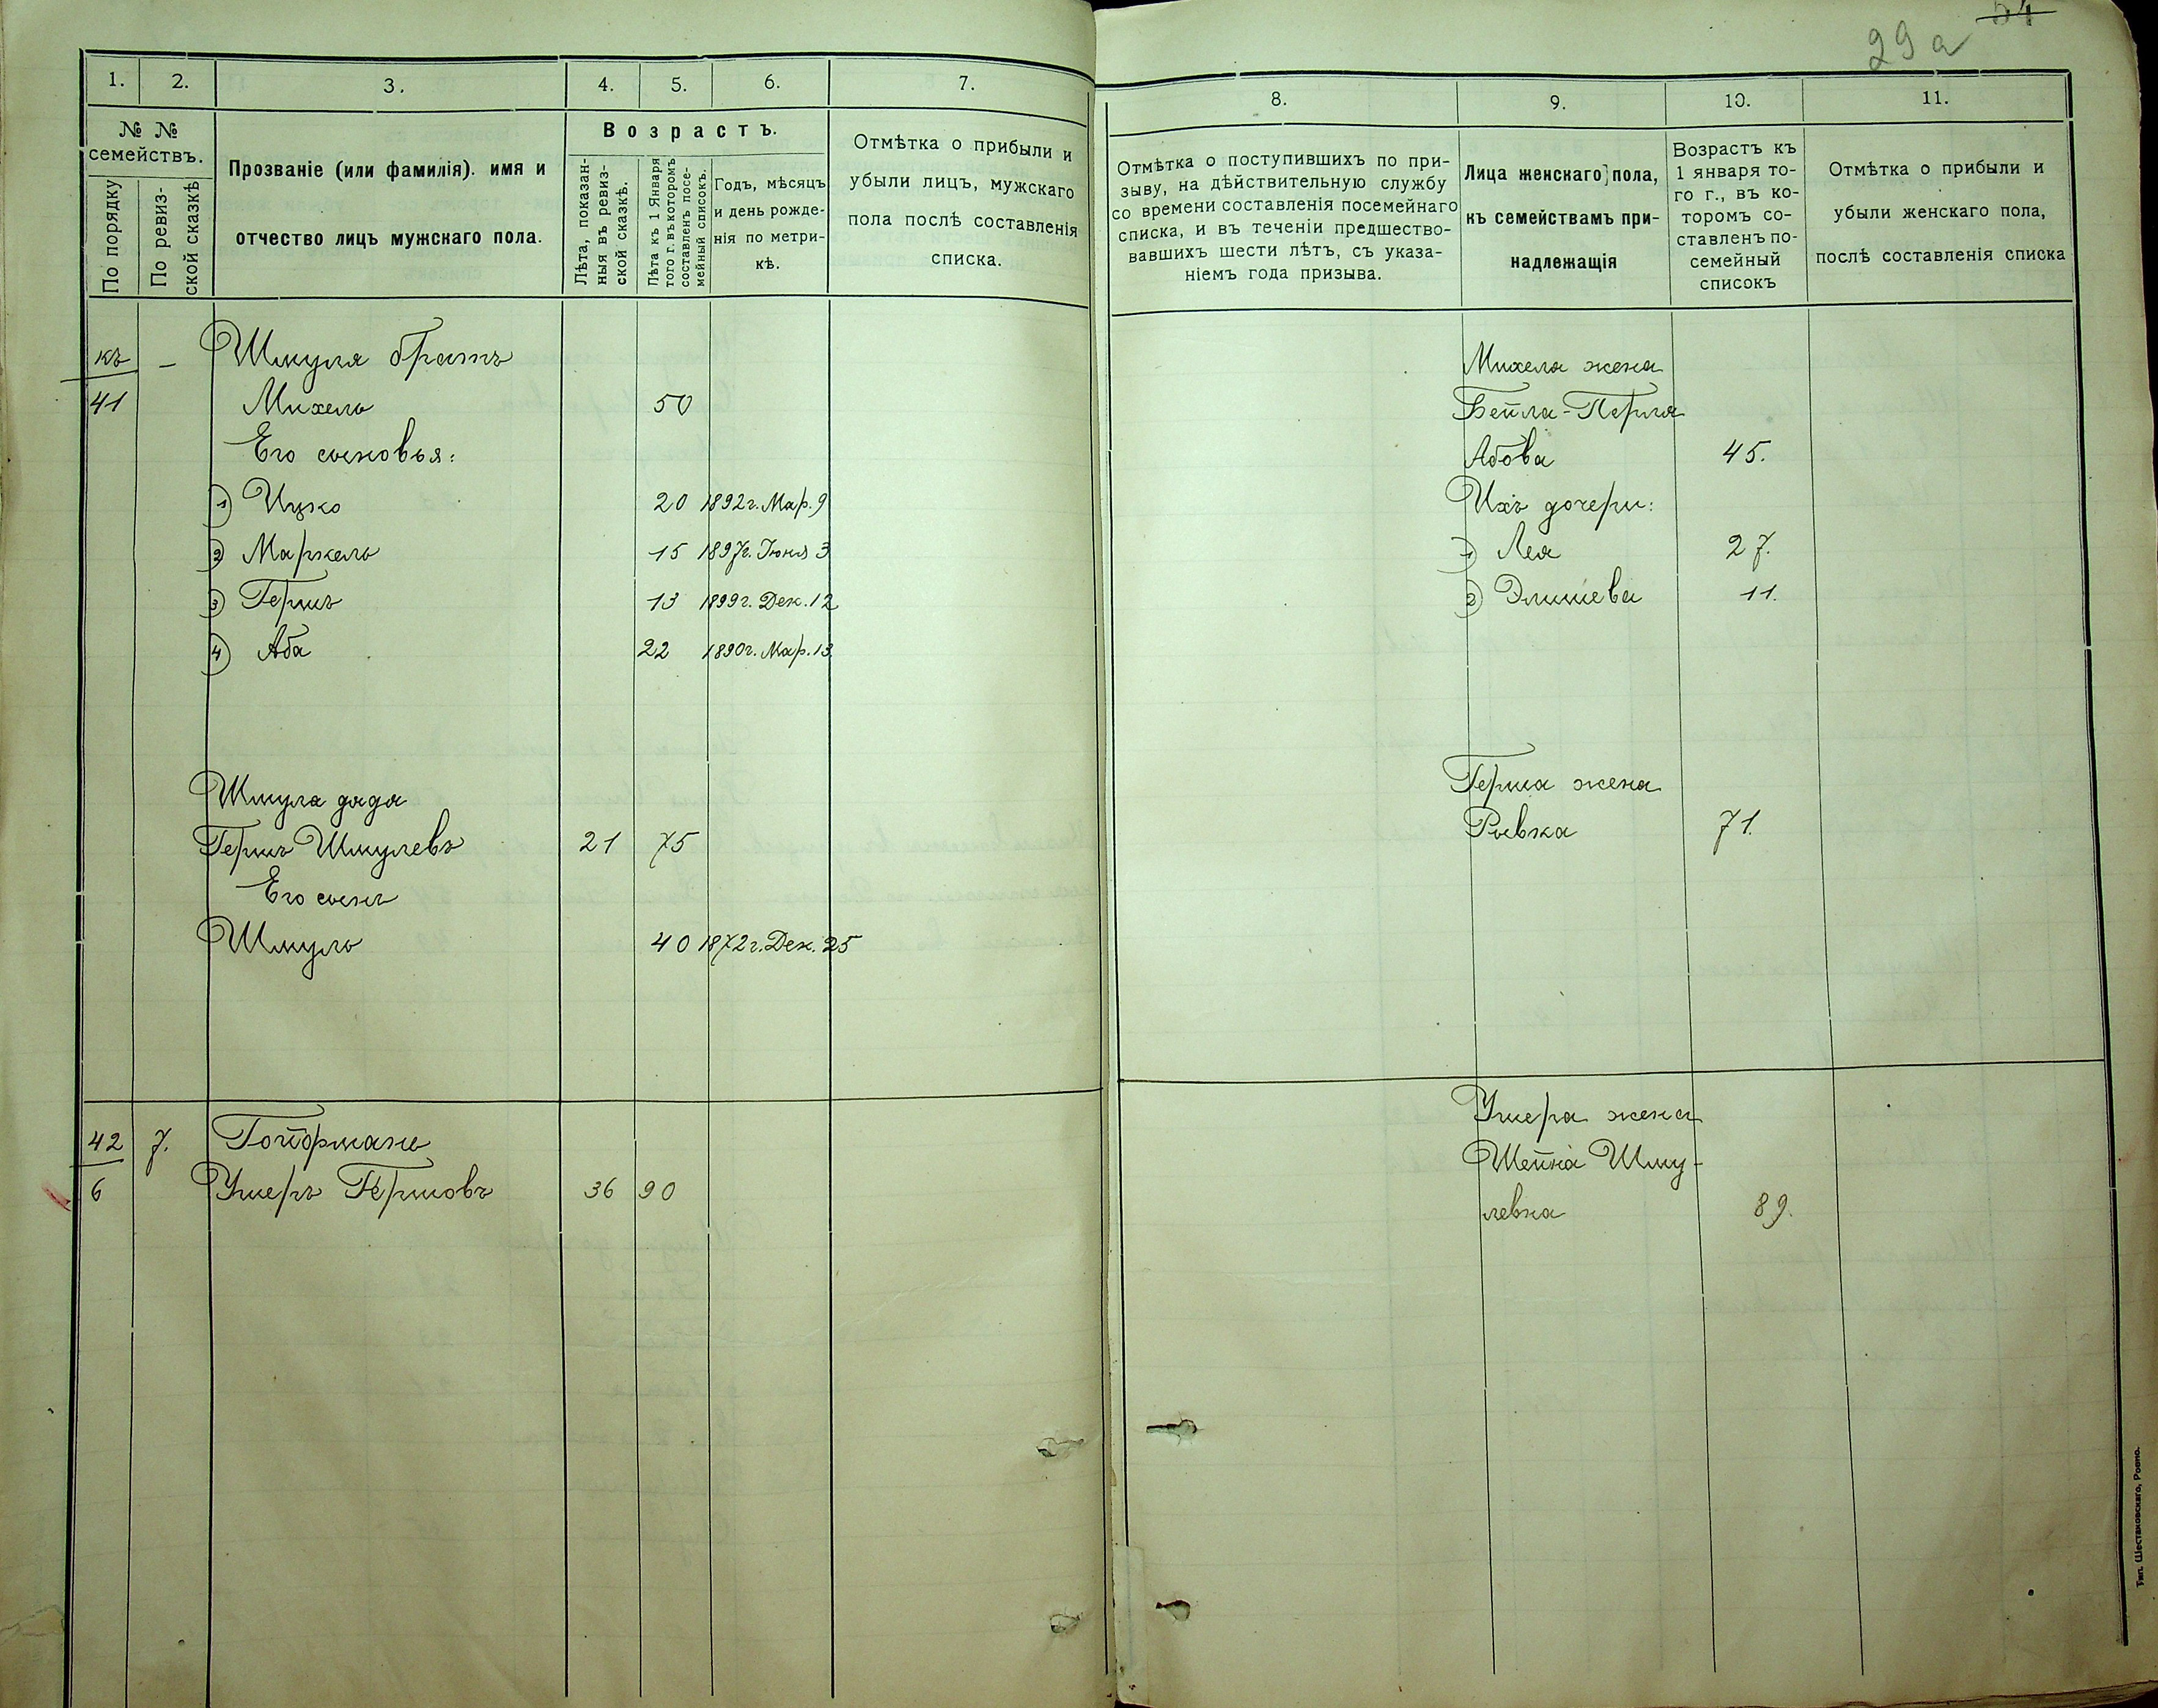 54
29 а
1.
2.
3.
4.
5.
6.
7.
8.
9.
10.
11.
№ №
семействъ.
По порядку
По ревиз-
ской сказкѣ
Прозваніе (или фамилія). имя и
отчество лицъ мужскаго пола.
Возрастъ.
Лѣта, показан-
ныя въ ревиз-
ской сказкѣ.
Лѣта къ 1 Января
того г. въ которомъ
составленъ посе-
мейный списокъ.
Годъ, мѣсяцъ
и день рожде-
нія по метри-
кѣ.
Отмѣтка о прибыли и
убыли лицъ, мужскаго
пола послѣ составленія
списка.
Отмѣтка о поступившихъ по при-
зыву, на дѣйствительную службу
со времени составленія посемейнаго
списка, и въ теченіи предшество-
вавшихъ шести лѣтъ, съ указа-
ніемъ года призыва.
Лица женскаго пола,
къ семействамъ при-
надлежащія
Возрастъ къ
1 января то-
го г., въ ко-
торомъ со-
ставленъ по-
семейный
списокъ
Отмѣтка о прибыли и
убыли женскаго пола,
послѣ составленія списка
къ — Шмуля братъ
41 Михель 50
Его сыновья:
1) Ицко 20 1892г. Мар. 9
2) Маркель 15 1897г. Іюня 3
3) Гершъ 13 1899г. Дек. 12
4) Аба 22 1890г. Мар. 13.
Шмуля дядя
Гершъ Шмулевъ 21 75
Его сынъ
Шмуль 40 1872г. Дек. 25
42 7. Гойфманъ
6 Ушеръ Гершовъ 36 90
Михеля жена
Бейла-Перля
Абова 45.
Ихъ дочери:
1) Лея 27.
2) Элишева 11.
Герша жена
Рывка 71.
Ушера жена
Шейна Шму-
левна 89.
Тип. Шестаковскаго, Ровно.